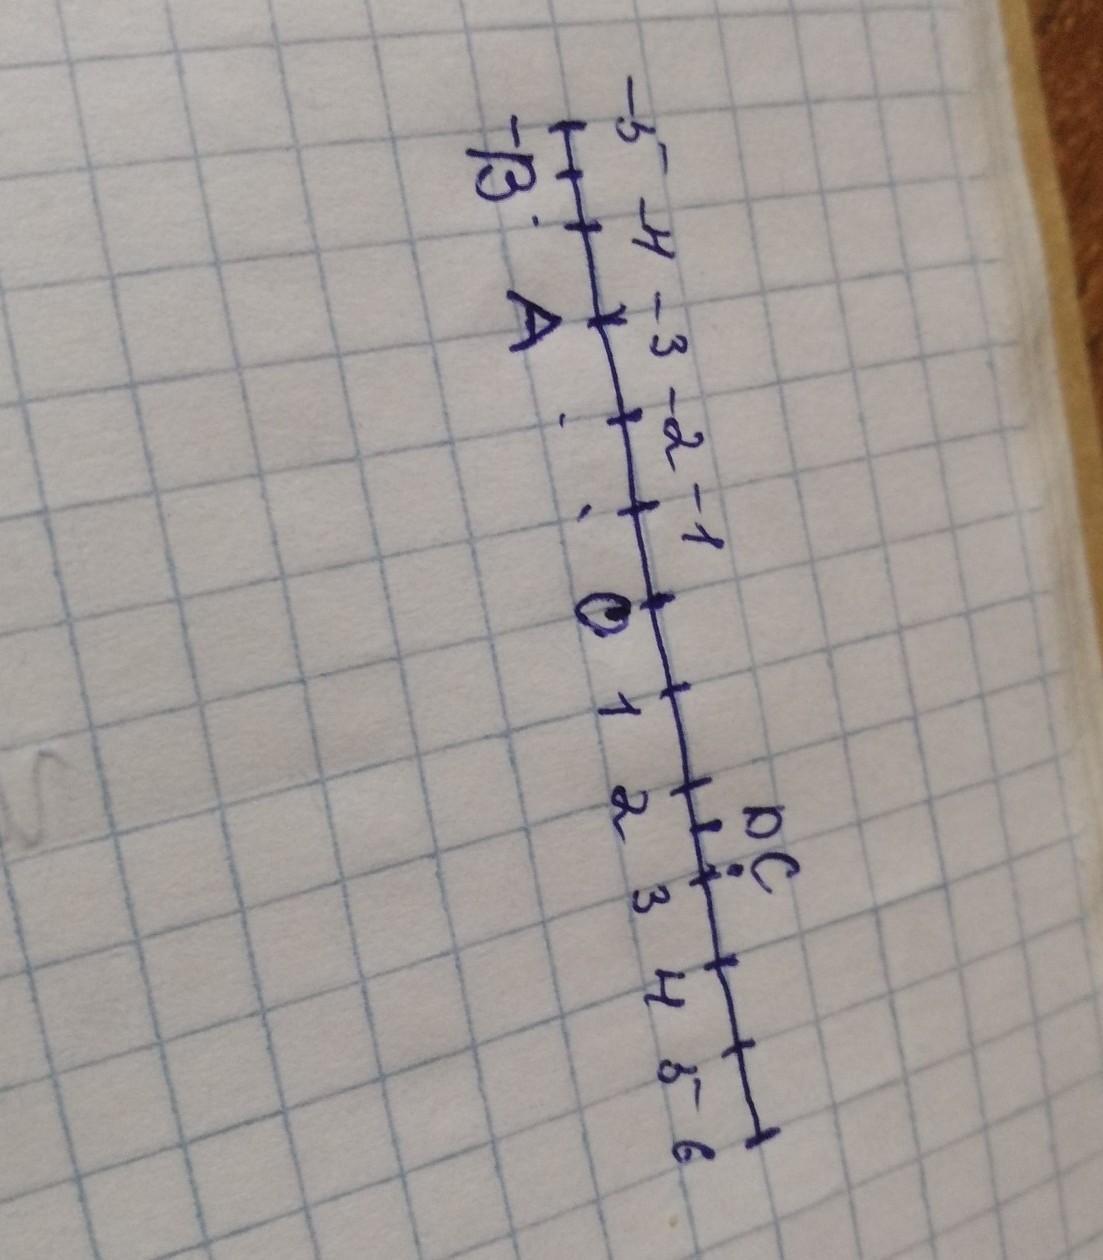 -5 -4 -3 -2 -1 D C
-B A 0 1 2 3 4 5 6